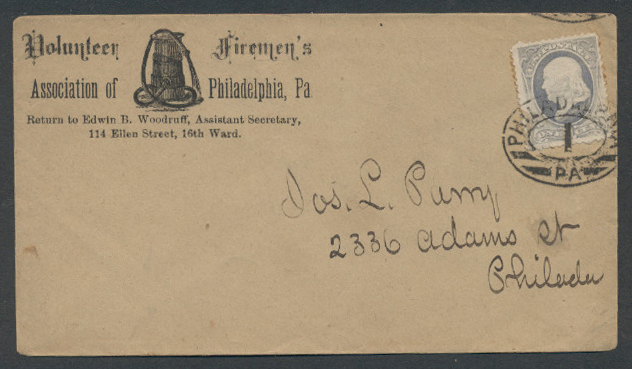 Volunteer Firemen's
Association of Philadelphia, Pa
Return to Edwin B. Woodruff, Assistant Secretary,
114 Ellen Street, 16th Ward.
PHILADELPHIA
1
PA
Jos. L. Parry
2336 Adams st
Philada